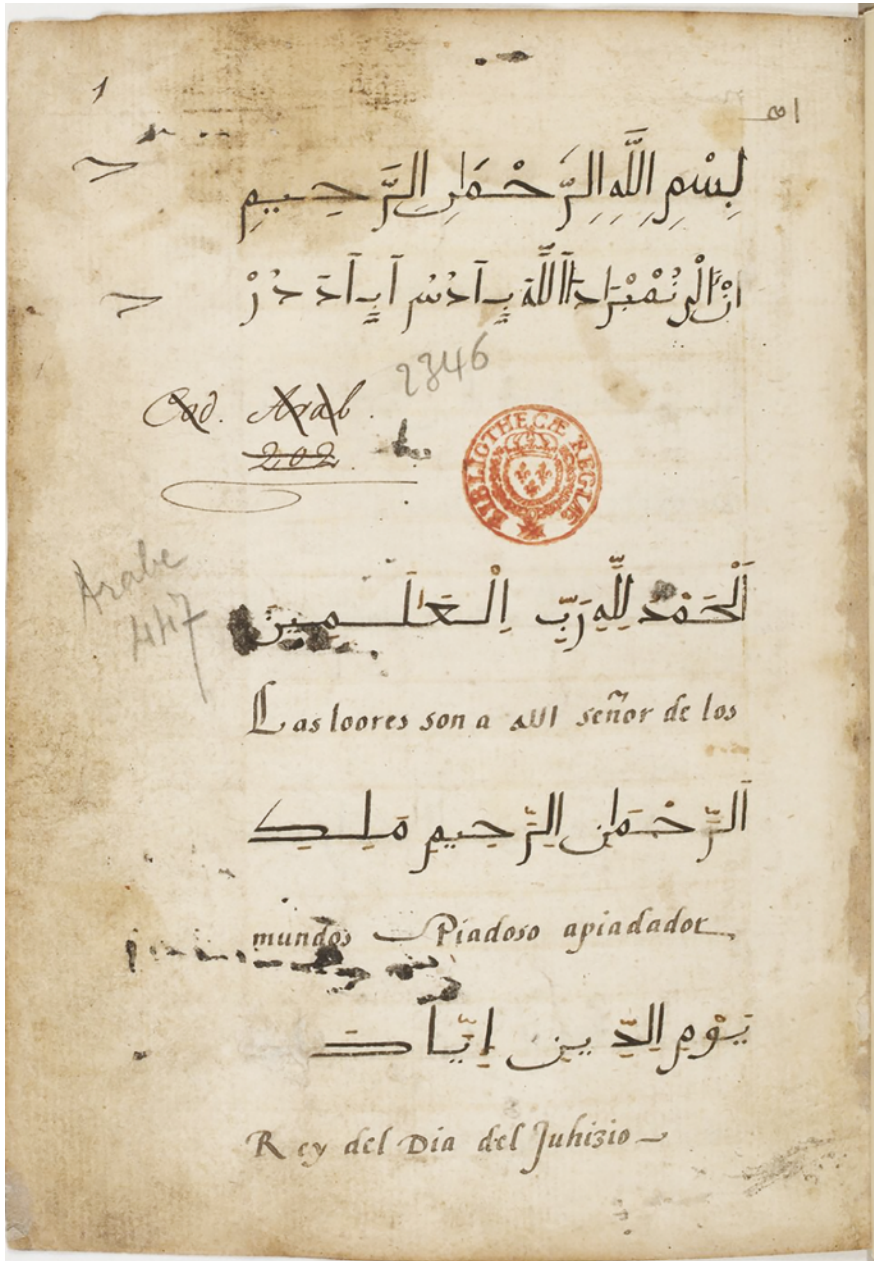 1
بِسْمِ اللَّهِ الرَّحْمَانِ الرَّحِيمِ
اَنْ اَلْ نُمْبْرَا دَا اَللَّه بِّاَدُسُ اَبِّاَدَدُرْ
2346
Cod. Arab.
202.
BIBLIOTHECÆ REGIÆ
Arabe
447
اَلْحَمْدُ لِلَّهِ رَبِّ اِلْعَالَمِينَ
Las loores son a الله señor de los
اَلرَّحْمَانِ اِلرَّحِيمِ مَلِكِ
mundos Piadoso apiadador
يَوْمِ اِلدِّينِ اِيَّاكَ
Rey del Dia del Juhizio